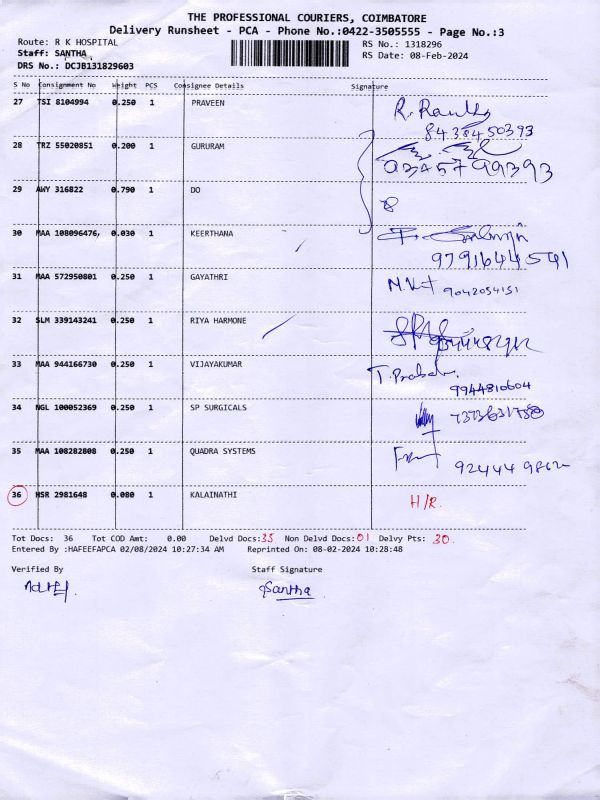 THE PROFESSIONAL COURIERS, COIMBATORE
Delivery Runsheet - PCA - Phone No.:0422-3505555 - Page No.:3
Route: R K HOSPITAL RS No.: 1318296
Staff: SANTHA RS Date: 08-Feb-2024
DRS No.: DCJB131829603
S No Consignment No Weight PCS Consignee Details Signature
27 TSI 8104994 0.250 1 PRAVEEN
8438450393
28 TRZ 55020851 0.200 1 GURURAM
29 AWY 316822 0.790 1 DO
30 MAA 108096476, 0.030 1 KEERTHANA
9791644541
31 MAA 572950801 0.250 1 GAYATHRI
9042054151
32 SLM 339143241 0.250 1 RIYA HARMONE
33 MAA 944166730 0.250 1 VIJAYAKUMAR T. Prabah.
9944810604
34 NGL 100052369 0.250 1 SP SURGICALS
35 MAA 108282808 0.250 1 QUADRA SYSTEMS
36 HSR 2981648 0.080 1 KALAINATHI H/R.
Tot Docs: 36 Tot COD Amt: 0.00 Delvd Docs:35 Non Delvd Docs:01 Delvy Pts: 30.
Entered By :HAFEEFAPCA 02/08/2024 10:27:34 AM Reprinted On: 08-02-2024 10:28:48
Verified By Staff Signature
Santha